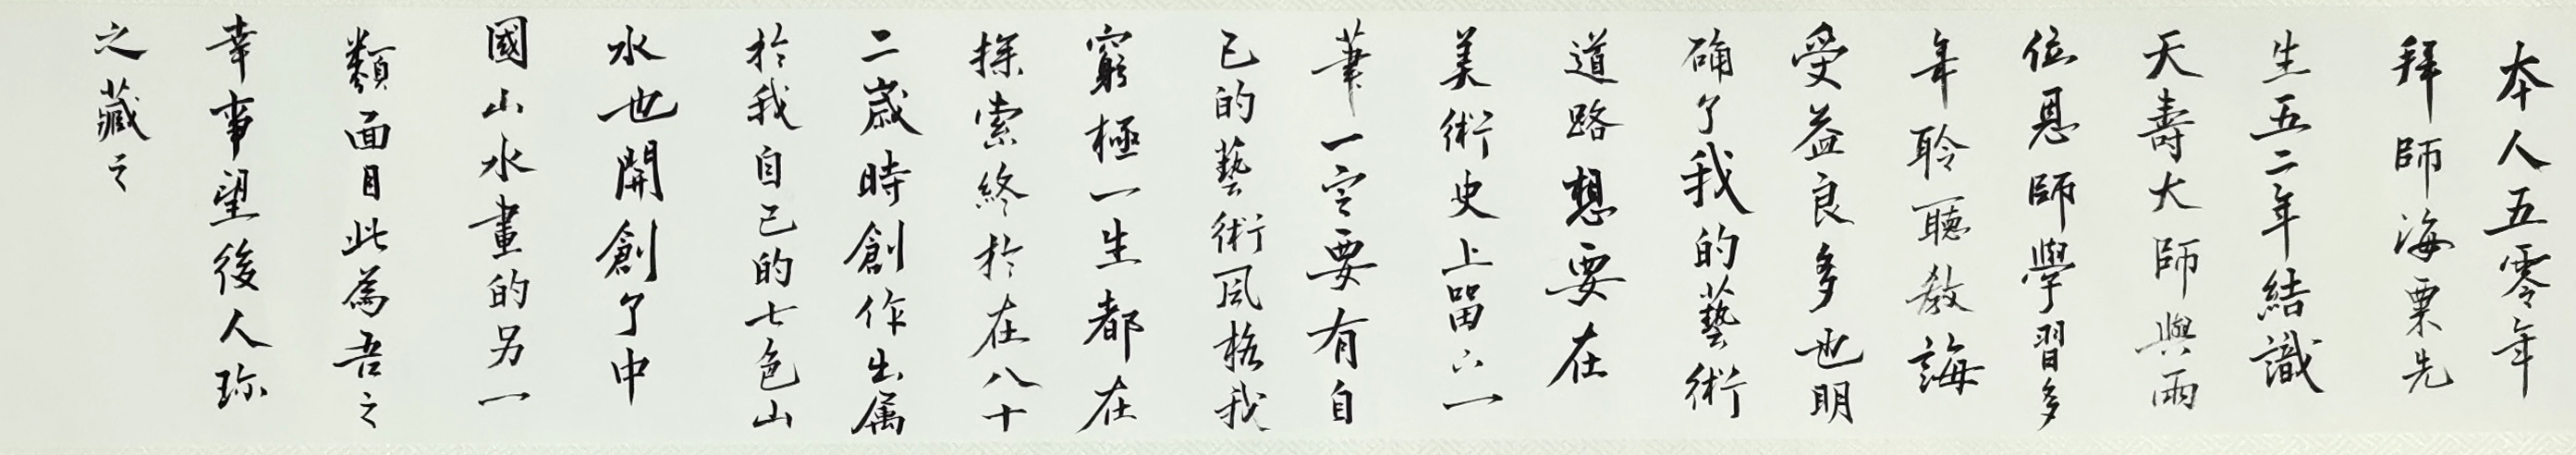 本人五零年
拜師海粟先
生五二年結識
天壽大師與兩
位恩師學習多
年聆聽教誨
受益良多也明
确了我的藝術
道路想要在
美術史上留下一
筆一定要有自
己的藝術風格我
窮極一生都在
探索終於在八十
二歲時創作出属
於我自己的七色山
水也開創了中
國山水畫的另一
類面目此為吾之
幸事望後人珎
之藏之